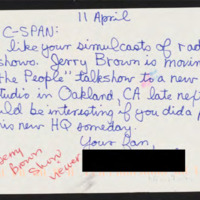 11 April
C-SPAN:
like your simulcasts of rad
shows. Jerry Brown is movin
the People" talkshow to a new
studio in Oakland, CA late
ld be interesting if you did a
is new HQ someday.
Your fan,
Jerry
Brown
Show
viewer